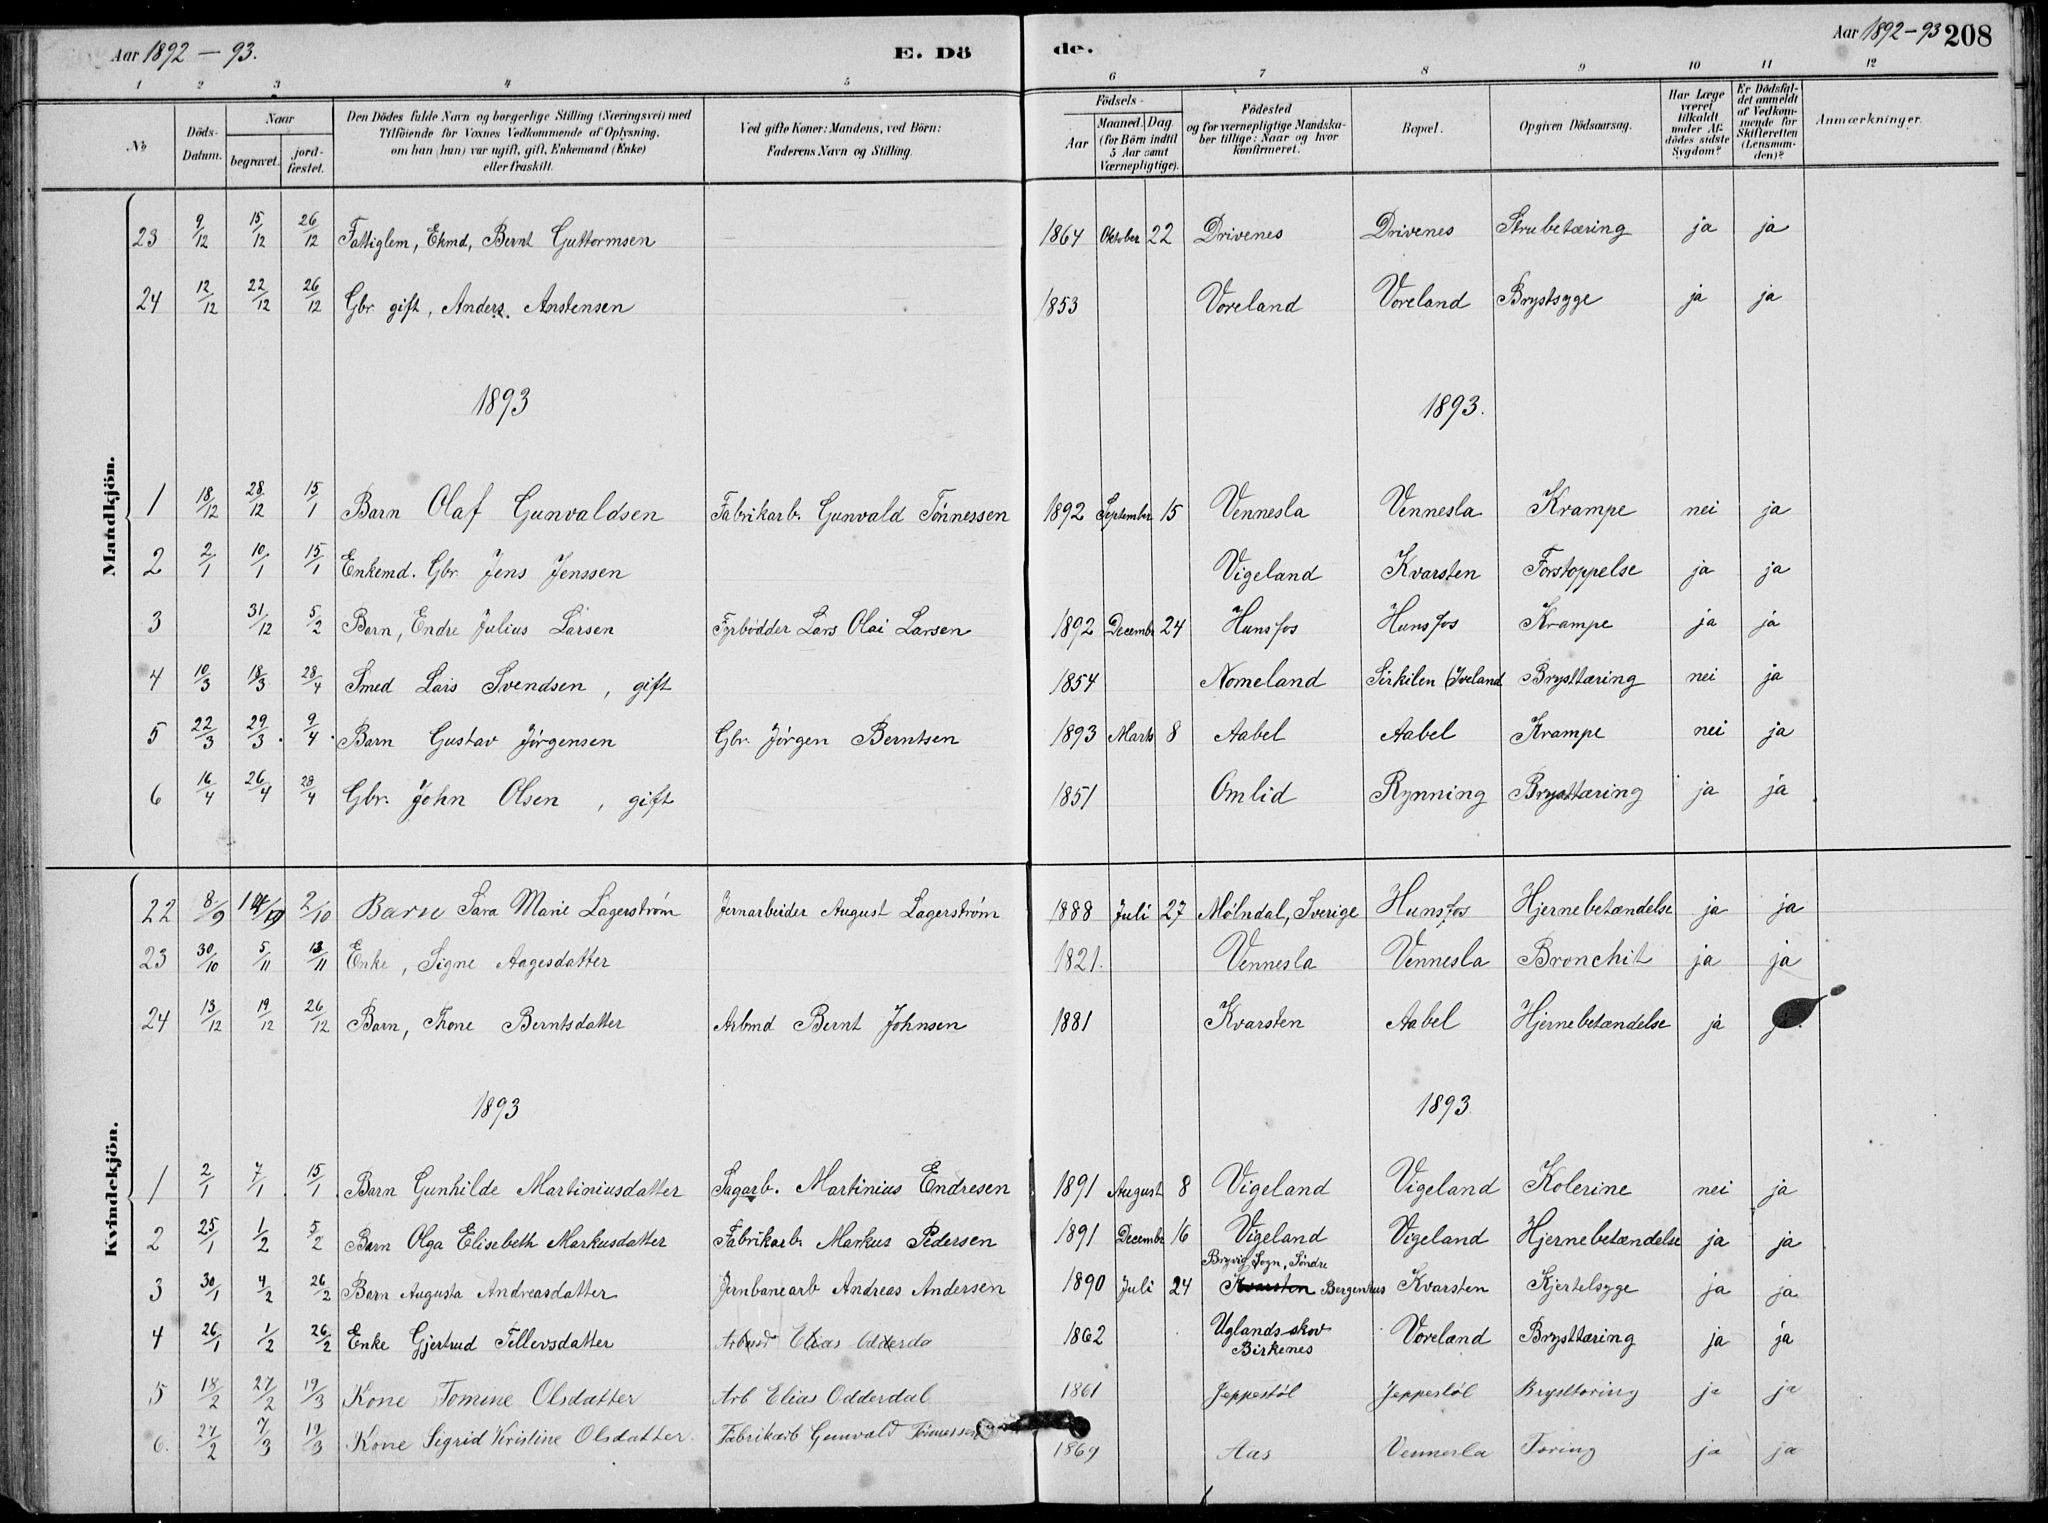 Aar 1892 — 93.
E. Dö
de.
Aar 1892 – 93 208
1 2 3 4 5 6 7 8 9 10 11 12
No
Döds-Datum.
Naar
begravet.
jord-fæstet.
Den Dödes fulde Navn og borgerlige Stilling (Næringsvei) med
Tilföiende for Voxnes Vedkommende af Oplysning,
om han (hun) var ugift, gift, Enkemand (Enke)
eller fraskilt.
Ved gifte Koner: Mandens, ved Börn:
Faderens Navn og Stilling.
Födsels-
Aar
Maaned. Dag.
(for Börn indtil
5 Aar samt
Værnepligtige).
Födested
og for værnepligtige Mandska-
ber tillige: Naar og hvor
konfirmeret.
Bopæl.
Opgiven Dödsaarsag.
Har Læge
været
tilkaldt
under Af-
dödes sidste
Sygdom?
Er Dödsfal-
det anmeldt
af Vedkom-
mende for
Skifteretten
(Lensman-
den)?
Anmærkninger.
Mandkjön.
23 9/12 15/12 26/12 Fattiglem, Ekmd, Bernt Guttormsen 1864 Oktober 22 Drivenes Drivenes Strubetæring ja ja
24 12/12 22/12 26/12 Gbr gift, Anders. Anstensen 1853 Voreland Voreland Brystsyge ja ja
1893 1893.
1 18/12 28/12 15/1 Barn Olaf Gunvaldsen Fabrikarb. Gunvald Tönnessen 1892 September 15 Vennesla Vennesla Krampe nei ja
2 2/1 10/1 15/1 Enkemd. Gbr. Jens Jenssen Vigeland Kvarsten Forstoppelse ja ja
3 31/12 5/2 Barn, Endre Julius Larsen Fyrbødder Lars Olai Larsen 1892 Decembr 24 Hunsfos Hunsfos Krampe ja ja
4 10/3 18/3 28/4 Smed Lars Svendsen, gift 1854 Nomeland Sirkilen (Iveland Brysttæring nei ja
5 22/3 29/3. 9/4. Barn Gustav Jörgensen Gbr. Jörgen Berntsen 1893 Marts 8 Aabel Aabel Krampe nei ja
6 16/4 26/4 28/4 Gbr. John Olsen, gift 1851 Omlid Rynning Brysttæring ja ja
Kvindekjön.
22 8/9 2/10 Barn Sara Marie Lagerström Jernarbeider August Lagerström 1888 Juli 27 Mölndal, Sverige Hunsfos Hjernebetændelse ja ja
23 30/10 5/11 13/11 Enke, Signe Aagesdatter 1821. Vennesla Vennesla Bronchit ja ja
24 13/12 19/12 26/12 Barn, Thone Berntsdatter Arbmd Bernt Johnsen 1881 Kvarsten Aabel Hjernebetændelse ja
1893 1893.
1 2/1 7/1. 15/1. Barn Gunhilde Martiniusdatter Sagarb. Martinius Endresen 1891 August 8 Vigeland Vigeland Kolerine nei ja
2 25/1 1/2 5/2 Barn Olga Elisebeth Markusdatter Fabrikarb. Markus Pedersen 1891 Decembr 16 Vigeland Vigeland Hjernebetændelse ja ja
3 30/1 4/2 26/2 Barn Augusta Andreasdatter Jernbanearb Andreas Andersen 1890 Juli 24 Bryvig Sogn, Söndre Kvarsten Bergenhus Kvarsten Kjertelsyge ja ja
4 26/1 1/2 26/2 Enke Gjertrud Tellevsdatter Arbmd Elias Odderda 1862 Uglands skov Birkenes Voreland Brysttæring ja ja
5 18/2 27/2 19/3 Kone Tomine Olsdatter Arb Elias Odderdal 1861 Jeppestöl Jeppestöl Brysttæring ja ja
6. 27/2 7/3 19/3 Kone Sigrid Kristine Olsdatter. Fabrikarb Gunvald Tönnessen 1869 Aas Vennesla Tæring ja ja